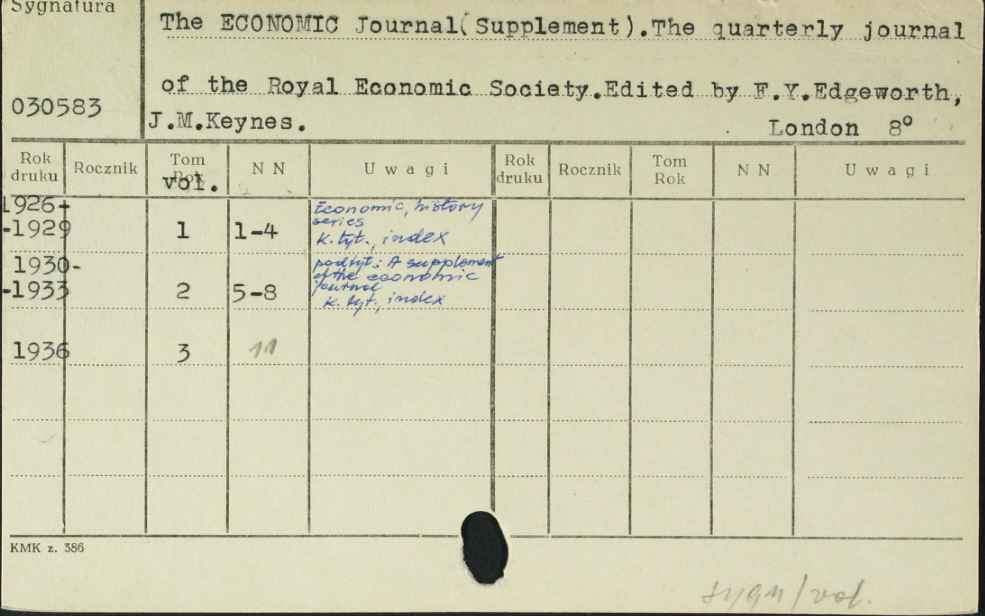 Sygnatura
The ECONOMIC Journal(Supplement).The quarterly journal
of the Royal Economic Society.Edited by F.Y.Edgeworth,
030583
J.M.Keynes. London 8º
Rok druku Rocznik Tom Rok N N Uwagi Rok druku Rocznik Tom Rok N N Uwagi
vol.
1926-
-1929 1 1-4 Economic, history
series
k. tyt., index
1930-
-1933 2 5-8 podtyt.: A supplement
of the economic
journal
k. tyt., index
1936 3 11
KMK z. 386
sygn/vol.